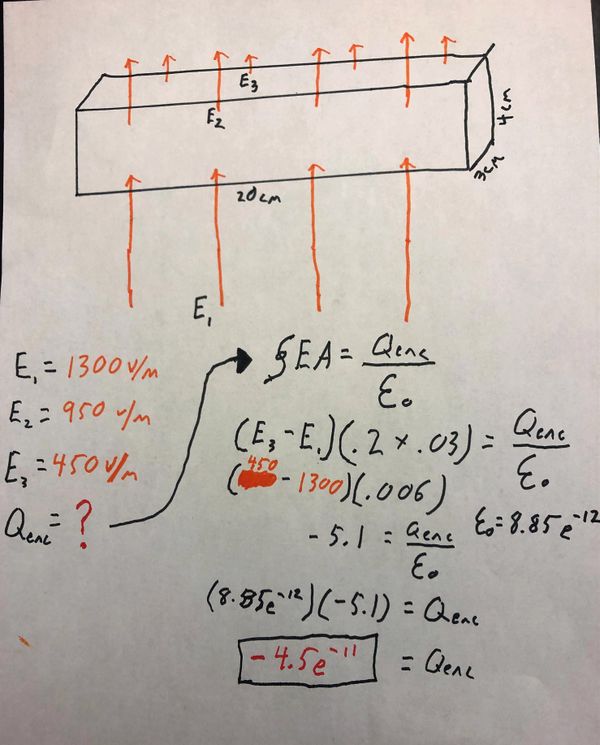 E₃
E₂
4cm
3cm
20cm
E₁
E₁ = 1300 v/m
E₂ = 950 v/m
E₃ = 450 v/m
Qenc = ?
∮EA = Qenc/ε₀
(E₃ - E₁)(.2 × .03) = Qenc/ε₀
(450 - 1300)(.006)
ε₀ = 8.85e⁻¹²
-5.1 = Qenc/ε₀
(8.85e⁻¹²)(-5.1) = Qenc
-4.5e⁻¹¹ = Qenc